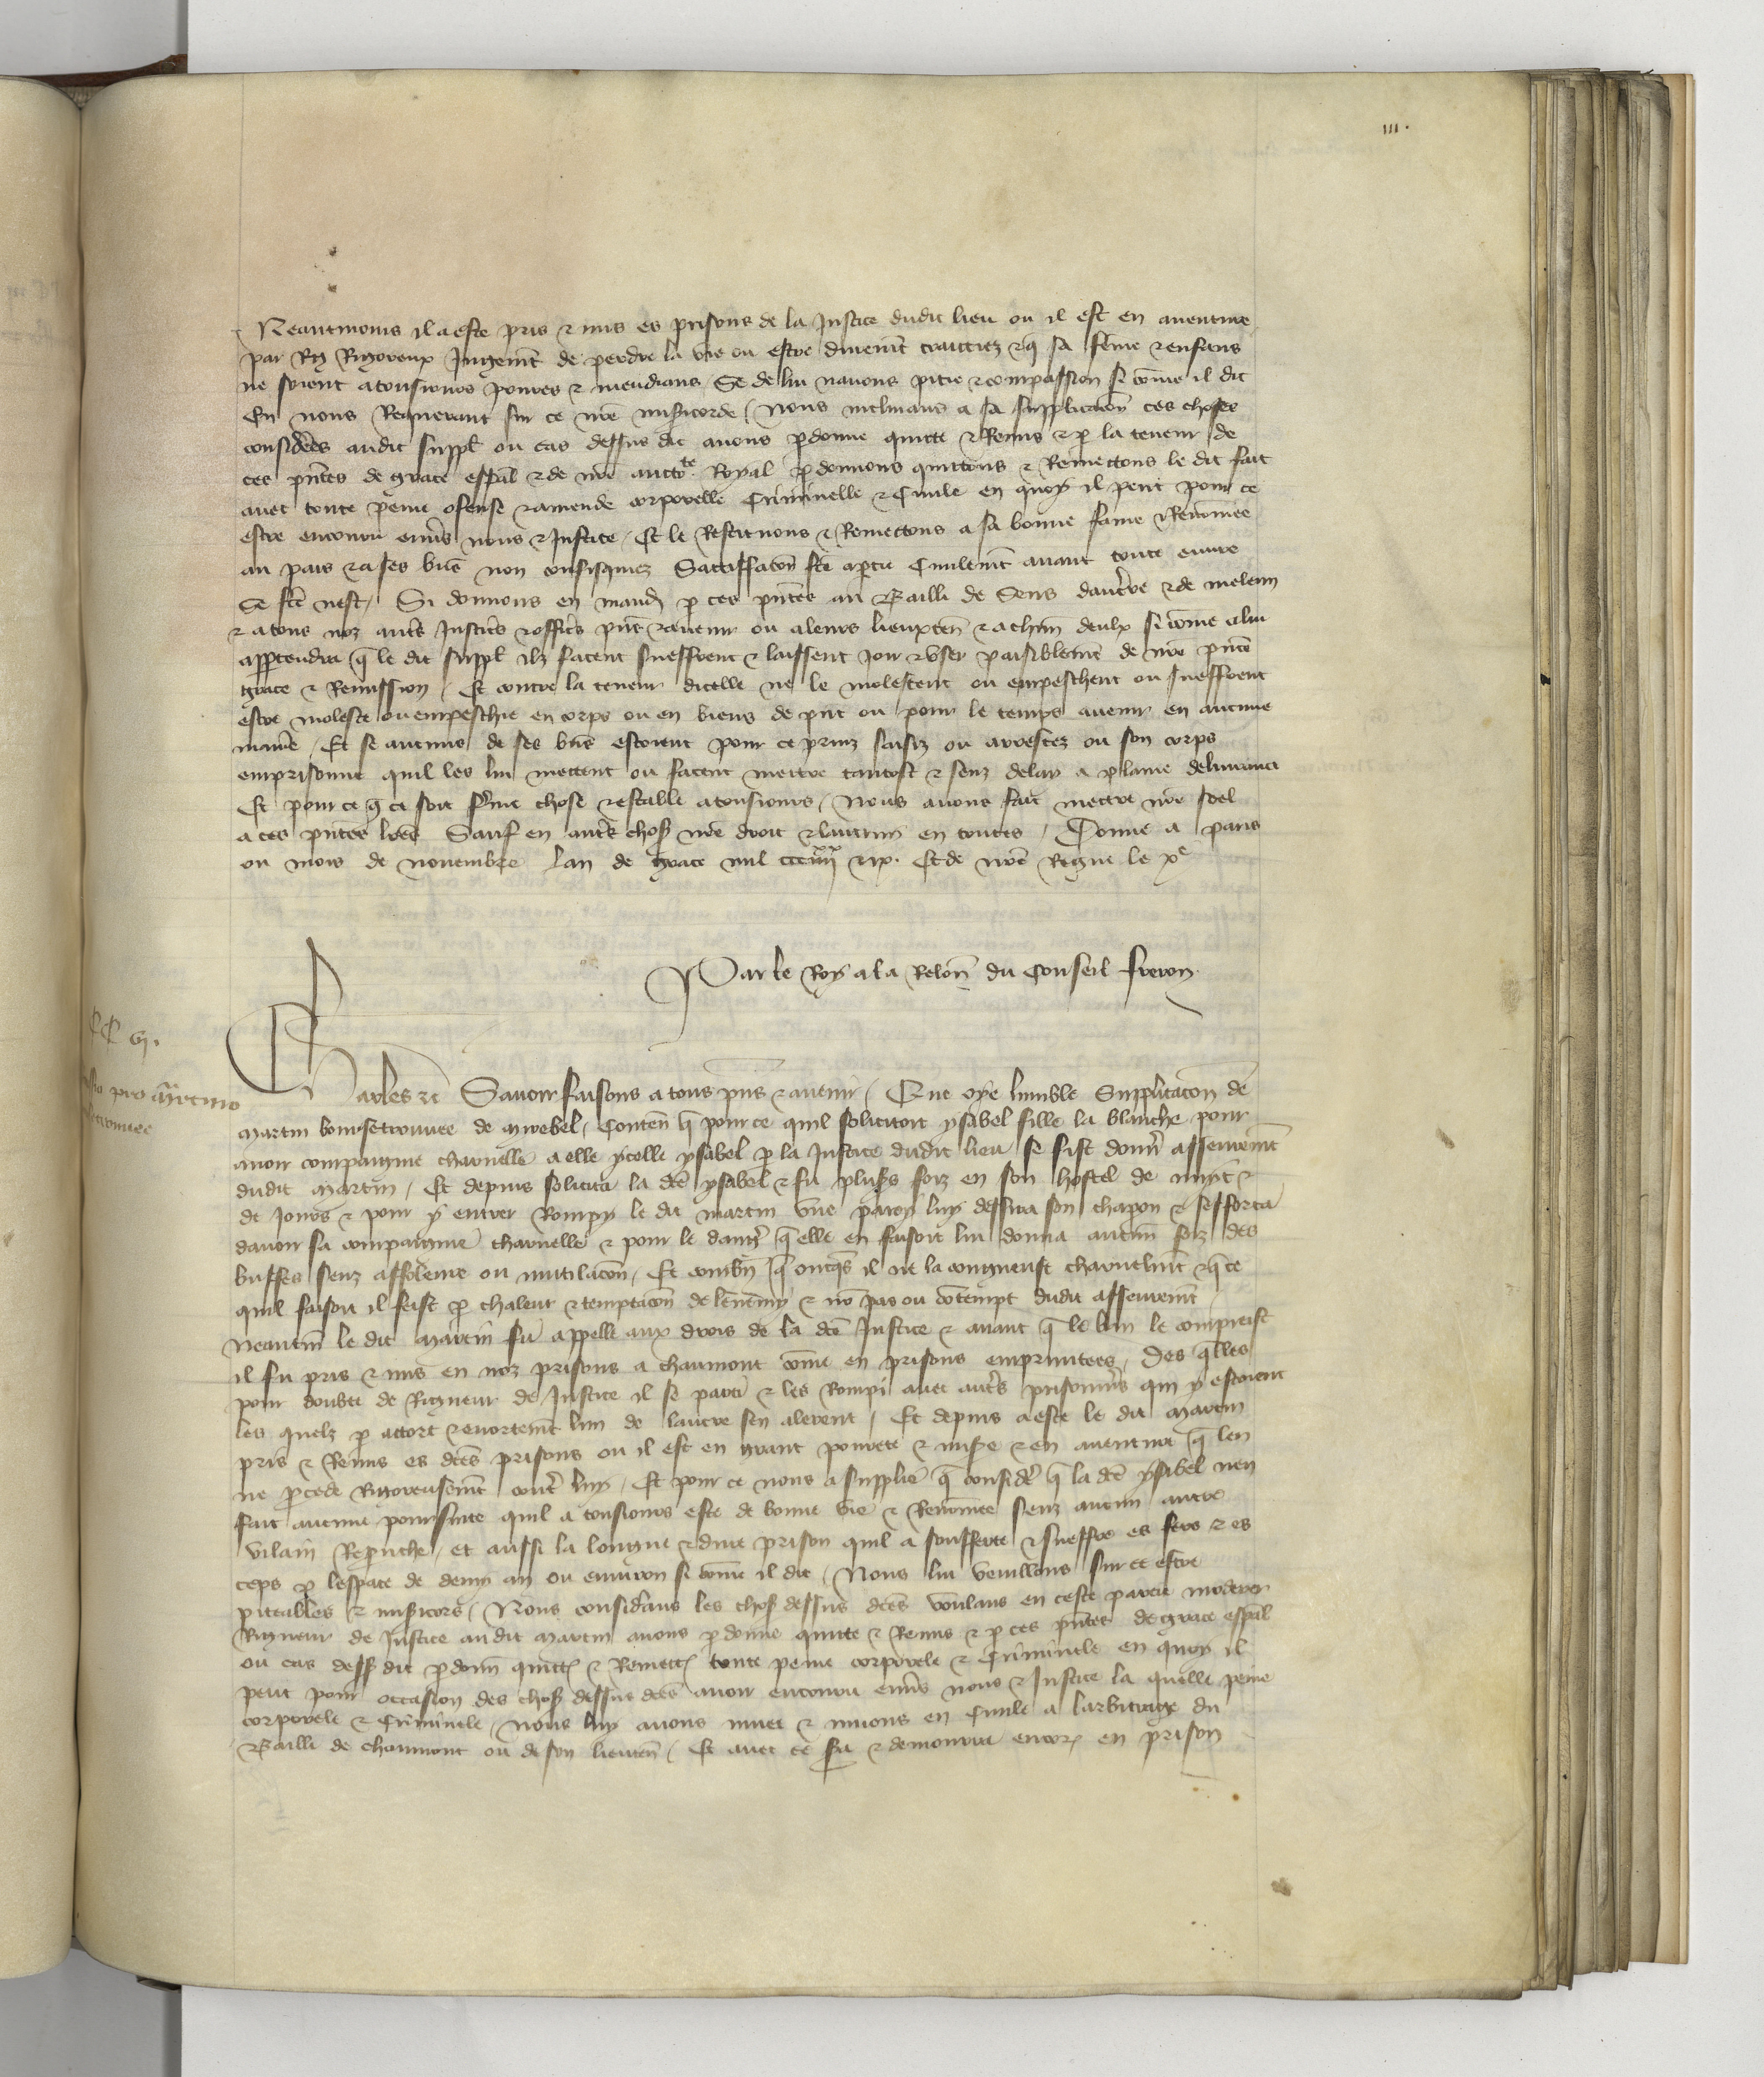 III.
Neantmoins il a este pris & mis es prisons de la Justice dudit lieu ou il est en aventure
par Rigoreux Jugemt de perdre la vie ou estre durement traictiez & q sa fēme & enfans
ne soient a tousiours povres & mendians Se de lui navons pitie & compassion si cōme il dit
En nous Requerant sur ce nre misicorde / Nous inclinans a sa supplicacōn ces choses
considerees audit suppl ou cas dessus dit avons pdonne quicte & Remis & p la teneur de
ces pntes de grace espal & de nre auctote Royal pdonnons quictons & Remectons le dit fait
avec toute peine ofense & amende corporelle Criminelle & Civile en quoy il peut pour ce
estre encouru envs nous & Justice / Et le Restituons & Remectons a sa bonne fame & Renōmee
au pais & a ses bns non confisquez Satisffacōn fce a ptie Civilemt avant toute euvre
Se fce nest / Si donnons en mand p ces pntes au Bailli de Sens daucrre & de meleun
& a tous noz autrs Justicrs & officrs pns & avenir ou a leurs lieuxten & a chun deulx si cōme a lui
apptendra q le dit suppl ilz facent sueffrent & laissent Joir & user paisiblemt de nre pnte
grace & Remission / Et contre la teneur dicelle ne le molestent ou empeschent ou sueffrent
estre moleste ou empeschie en corps ou en biens de pnt ou pour le temps avenir en aucune
maniere / Et se aucuns de ses bns estoient pour ce prins saisiz ou arrestez ou son corps
emprisonne quil les lui mectent ou facent mectre tantost & senz delay a plaine delivrance
Et pour ce q ce soit ferme chose & estable a tousiours / Nous avons fait mectre nre seel
a ces pntes lres Sauf en autrs choses nre droit & lautruy en toutes / Donne a paris
ou mois de novembre Lan de grace mil ccc iiijxx & ix. Et de nre Regne le xe
Par le Roy a la Relon du Conseil freron
CC vj.
pro martino
Charles &c Savoir faisons a tous pns & avenir / Que oye lumble Supplicacōn de
martin boursetrouvee de mirebel / Conten q pour ce quil solicitoit ysabel fille la blanche pour
avoir compaignie charnelle a elle ycelle ysabel p la Justice dudit lieu se fist donner asseurement
dudit martin / Et depuis solicita la dce ysabel & fu plusrs foiz en son hostel de nuyt &
de Jours & pour y entrer Rompy le dit martin une paroy luy dessira son chapon & sefforca
davoir sa compaignie charnelle & pour le dangr q elle en faisoit lui donna aucun foiz des
buffes senz affoleure ou mutilacōn / Et combn q oncqs il ne la congneust charnelmt & q ce
quil faisoit il feist p chaleur & temptacōn de lennemy & no pas ou contempt dudit asseuremt
Neantm le dit martin fu appelle aux drois de la dce Justice & avant q le ban le compreist
il fu pris & mis en noz prisons a chaumont cōme en prisons empruntees / Des qlles
pour doubte de Rigueur de Justice il se parti & les Rompi avec autrs prisonnrs qui y estoient
les quelz p accort & enortemt lun de lautre sen alerent / Et depuis a este le dit martin
pris & Remis es dces prisons ou il est en grant povrete & misere & en aventure q len
ne pcede Rigoreusemt contr luy / Et pour ce nous a supplie q considr q la dce ysabel nen
fait aucune poursuite quil a tousiours este de bonne vie & Renōmee senz aucun autre
vilain Reprouche / et aussi la longue & dure prison quil a soufferte & sueffre es fers & es
ceps p lespace de demy an ou environ si cōme il dit / Nous lui veuillons sur ce estre
piteables & misicors / Nous considrans les choses dessus dces voulans en ceste partie moderer
Rigueur de Justice audit martin avons pdonne quicte & Remis & p ces pntes de grace espal
ou cas dess dit pdonn quict & Remect toute peine corporele & Criminele en quoy il
peut pour occasion des choses dessus dces avoir encouru envs nous & Justice la quelle peine
corporele & Criminele / Nous luy avons muee & muons en Civile a larbitrage du
Bailli de chaumont ou de son lieuten / Et avec ce sera & demourra encor en prison